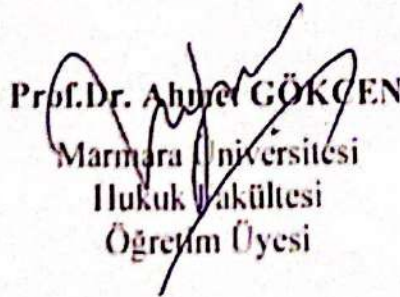 Prof.Dr. Ahmet GÖKCEN
Marmara Üniversitesi
Hukuk Fakültesi
Öğretim Üyesi